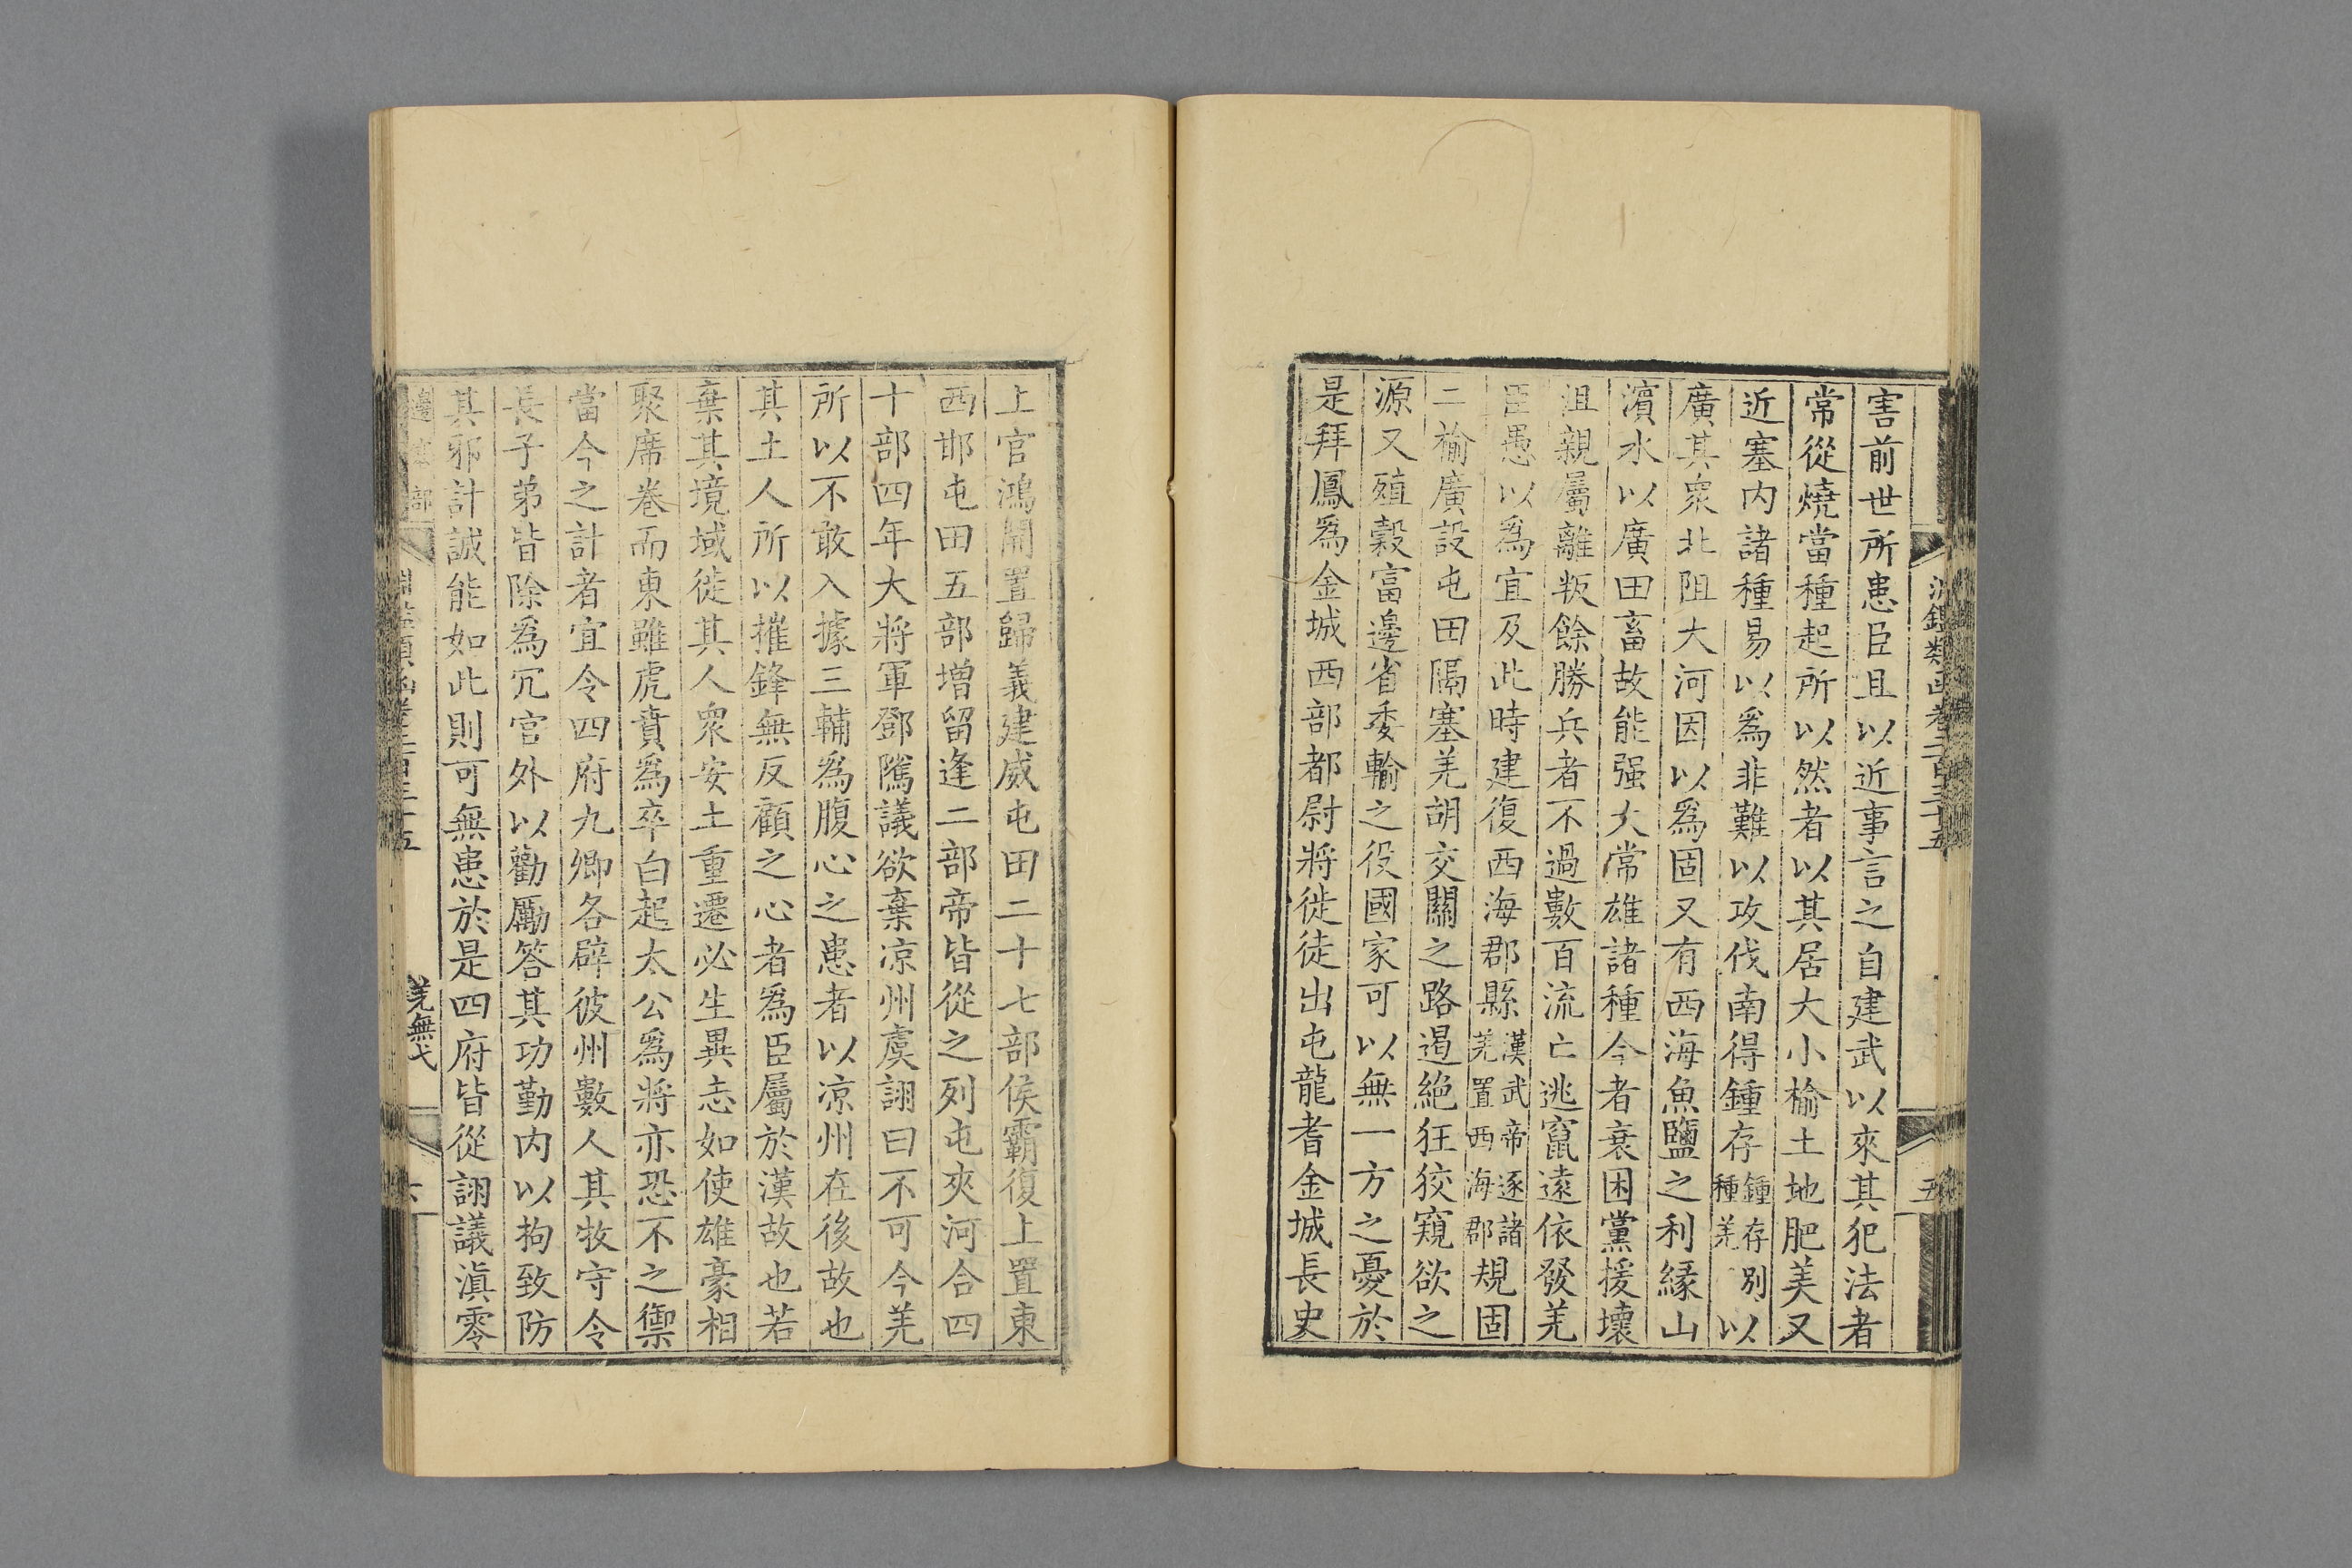 害前世所患臣且以近事言之自建武以來其犯法者
常從燒當種起所以然者以其居大小榆土地肥美又
近塞内諸種易以爲非難以攻伐南得鍾存鍾存別種羌以
廣其衆北阻大河因以爲固又有西海魚鹽之利緣山
濱水以廣田畜故能强大常雄諸種今者衰困黨援壞
沮親屬離叛餘勝兵者不過數百流亡逃竄遠依發羌
臣愚以爲宜及此時建復西海郡縣漢武帝逐諸羌置西海郡規固
二榆廣設屯田隔塞羌胡交關之路遏絶狂狡窺欲之
源又殖穀富邊省委輸之役國家可以無一方之憂於
是拜鳳爲金城西部都尉將徙徒出屯龍耆金城長史
上官鴻開置歸義建威屯田二十七部侯霸復上置東
西邯屯田五部增留逢二部帝皆從之列屯夾河合四
十部四年大將軍鄧隲議欲棄凉州虞詡曰不可今羌
所以不敢入據三輔爲腹心之患者以凉州在後故也
其土人所以摧鋒無反顧之心者爲臣屬於漢故也若
棄其境域徙其人衆安土重遷必生異志如使雄豪相
聚席卷而東雖虎賁爲卒白起太公爲將亦恐不之禦
當今之計者宜令四府九卿各辟彼州數人其牧守令
長子弟皆除爲冗官外以勸勵答其功勤内以拘致防
其邪計誠能如此則可無患於是四府皆從詡議滇零
邊塞部
羌無弋